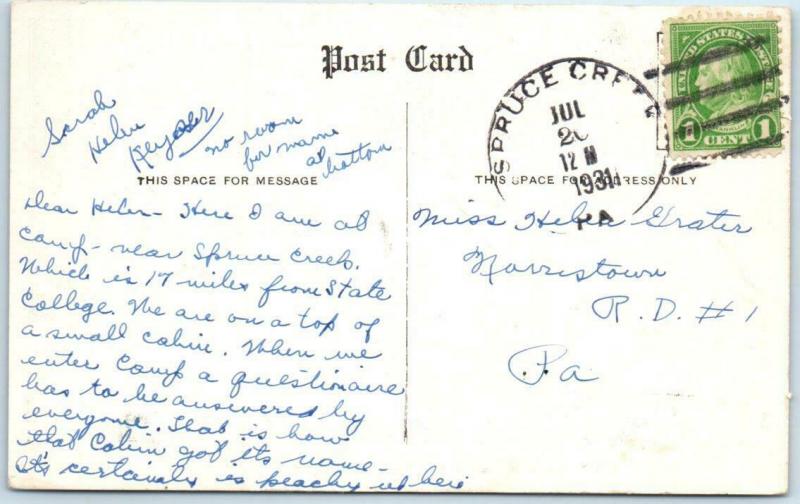 Post Card
Sarah
Helen
Keyser
no room
for name
at
bottom
THIS SPACE FOR MESSAGE
Dear Helen- Here I am at
camp- near Spruce Creek.
Which is 17 miles from State
College. We are on a top of
a small cabin. When we
enter Camp a questionaire
has to be answered by
everyone. That is how
that Cabin got its name-
It's certainly is peachy up here
SPRUCE CREEK
JUL
20
12 M
1931
PA
UNITED STATES POSTAGE
FRANKLIN
1 CENT 1
THIS SPACE FOR ADDRESS ONLY
Miss Helen Grater
Norristown
R. D. # 1
Pa